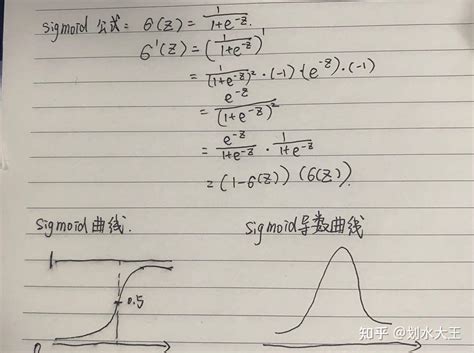 sigmoid 公式: σ(z) = 1/(1+e^{-z}).
σ'(z) = (1/(1+e^{-z}))'
= 1/(1+e^{-z})² · (-1) (e^{-z}) · (-1)
= e^{-z}/(1+e^{-z})²
= e^{-z}/(1+e^{-z}) · 1/(1+e^{-z})
= (1-σ(z)) (σ(z)).
sigmoid 曲线. sigmoid 导数曲线
1
0.5
0
知乎 @划水大王